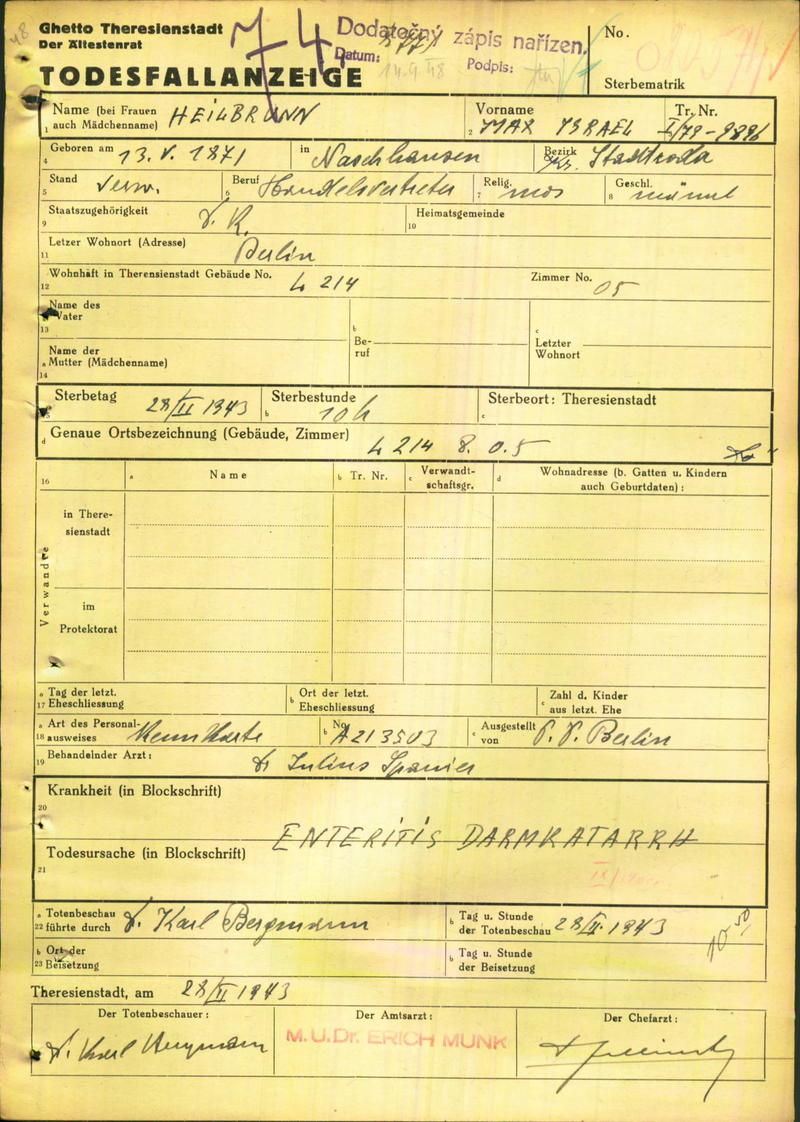 Ghetto Theresienstadt
Der Ältestenrat
TODESFALLANZEIGE
74
Dodatečný zápis nařízen.
Datum: 14.9 48 Podpis:
No.
Sterbematrik
48
Name (bei Frauen auch Mädchenname) HEILBRUNN
1
Vorname MAX ISRAEL
2
Tr. Nr. I/79-9896
3
Geboren am 13. V. 1871
4
in Naschhausen
Bezirk Kr. Stadtroda
Stand verw.
5
Beruf Handelsvertreter
6
Relig. mos
7
Geschl. männl
8
Staatszugehörigkeit D. R.
9
Heimatsgemeinde
10
Letzer Wohnort (Adresse) Berlin
11
Wohnhaft in Theresienstadt Gebäude No. L 214
12
Zimmer No. 05
a Name des Vater
13
b Beruf
c Letzter Wohnort
a Name der Mutter (Mädchenname)
14
Sterbetag 28/II 1943
15
Sterbestunde 10 h
b
Sterbeort: Theresienstadt
c
d Genaue Ortsbezeichnung (Gebäude, Zimmer) L 214 8. 0.5
16 a Name b Tr. Nr. c Verwandtschaftsgr. d Wohnadresse (b. Gatten u. Kindern auch Geburtdaten):
Verwandte
in Theresienstadt
im Protektorat
a Tag der letzt. Eheschliessung
17
b Ort der letzt. Eheschliessung
c Zahl d. Kinder aus letzt. Ehe
a Art des Personalausweises Kennkarte
18
b No. A213503
c Ausgestellt von P. P. Berlin
Behandelnder Arzt: Dr Julius Spanier
19
Krankheit (in Blockschrift)
20
ENTERITIS DARMKATARRH
Todesursache (in Blockschrift)
21
a Totenbeschau führte durch Dr. Karl Bergmann
22
b Tag u. Stunde der Totenbeschau 28/II. 1943 10 30
b Ort der Beisetzung
23
b Tag u. Stunde der Beisetzung
Theresienstadt, am 28/II 1943
Der Totenbeschauer: Der Amtsarzt: Der Chefarzt:
Dr. Karl Bergmann
M.U.Dr. ERICH MUNK